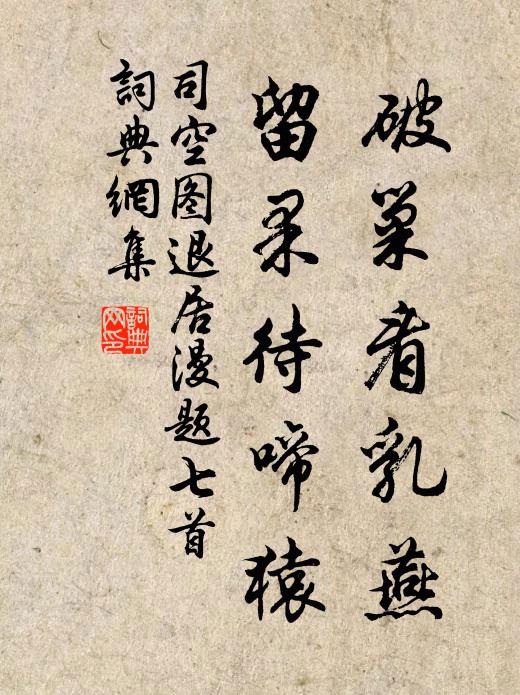 破巢看乳燕
留果待啼猿
司空图退居漫题七首
詞典網集
詞典网印